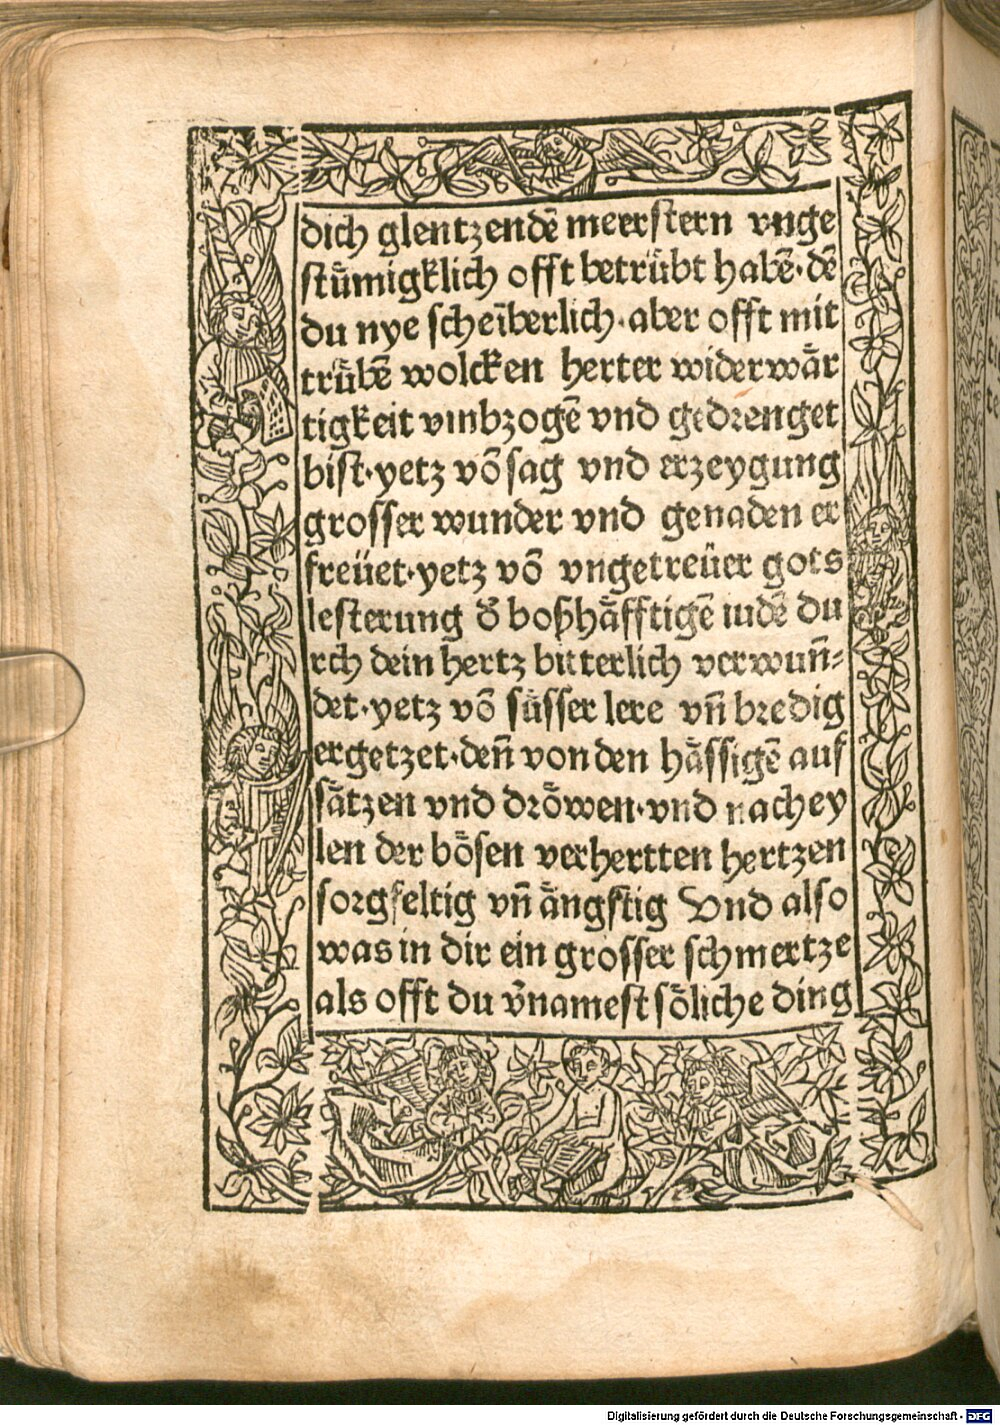 dich glentzendē meerstern vnge
stuͤmigklich offt betruͤbt habē·dē
du nye scheīberlich·aber offt mit
truͤbē wolcken herter widerwaͤr
tigkeit vmbzogē vnd gedrenget
bist·yetz vō sag vnd erzeygung
grosser wunder vnd genaden er
freüet·yetz vō vngetreüer gots
lesterung d̕ boßhaͤfftigē iudē du
rch dein hertz bitterlich verwun̄⸗
det·yetz vō suͤsser lere vn̄ bredig
ergetzet·den̄ von den haͤssigē auf
saͤtzen vnd droͤwen·vnd nachey
len der boͤsen verhertten hertzen
sorgfeltig vn̄ aͤngstig Vnd also
was in dir ein grosser schmertze
als offt du v̄namest soͤliche ding
Digitalisierung gefördert durch die Deutsche Forschungsgemeinschaft - DFG